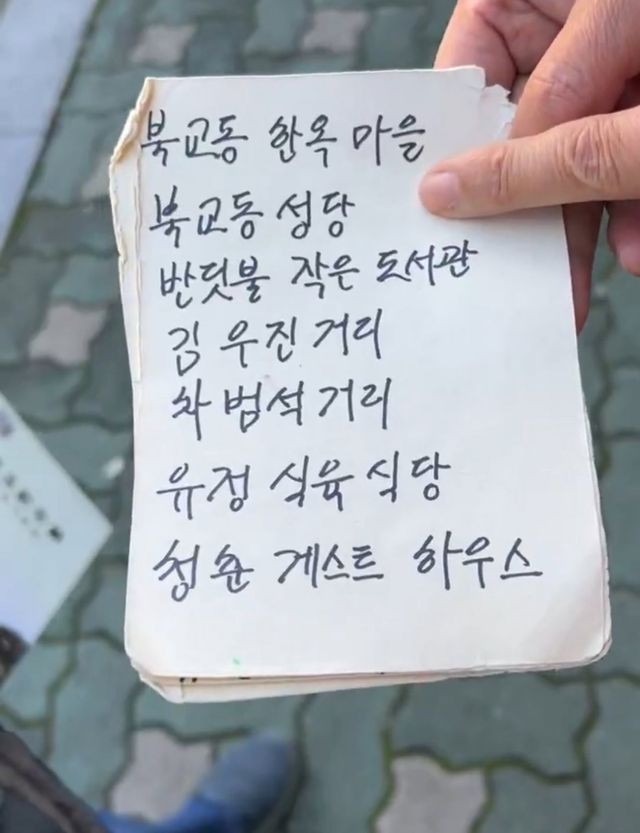 북교동 한옥 마을
북교동 성당
반딧불 작은 도서관
김 우진 거리
차 범석 거리
유정 식육 식당
청춘 게스트 하우스